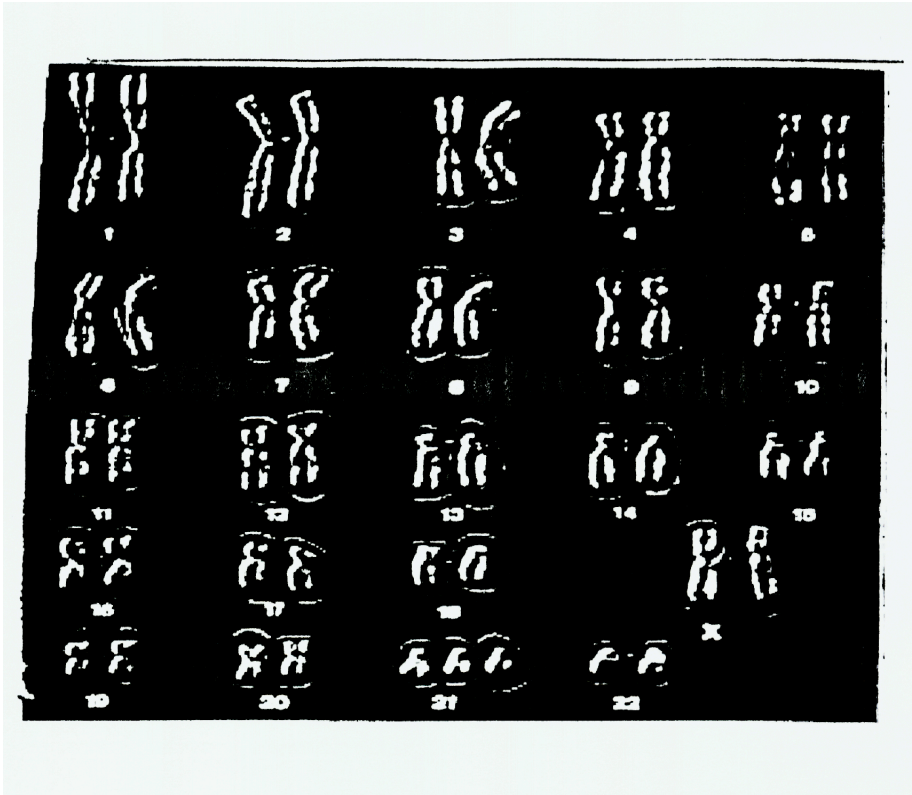 1 2 3 4 5
6 7 8 9 10
11 12 13 14 15
16 17 18
X
19 20 21 22